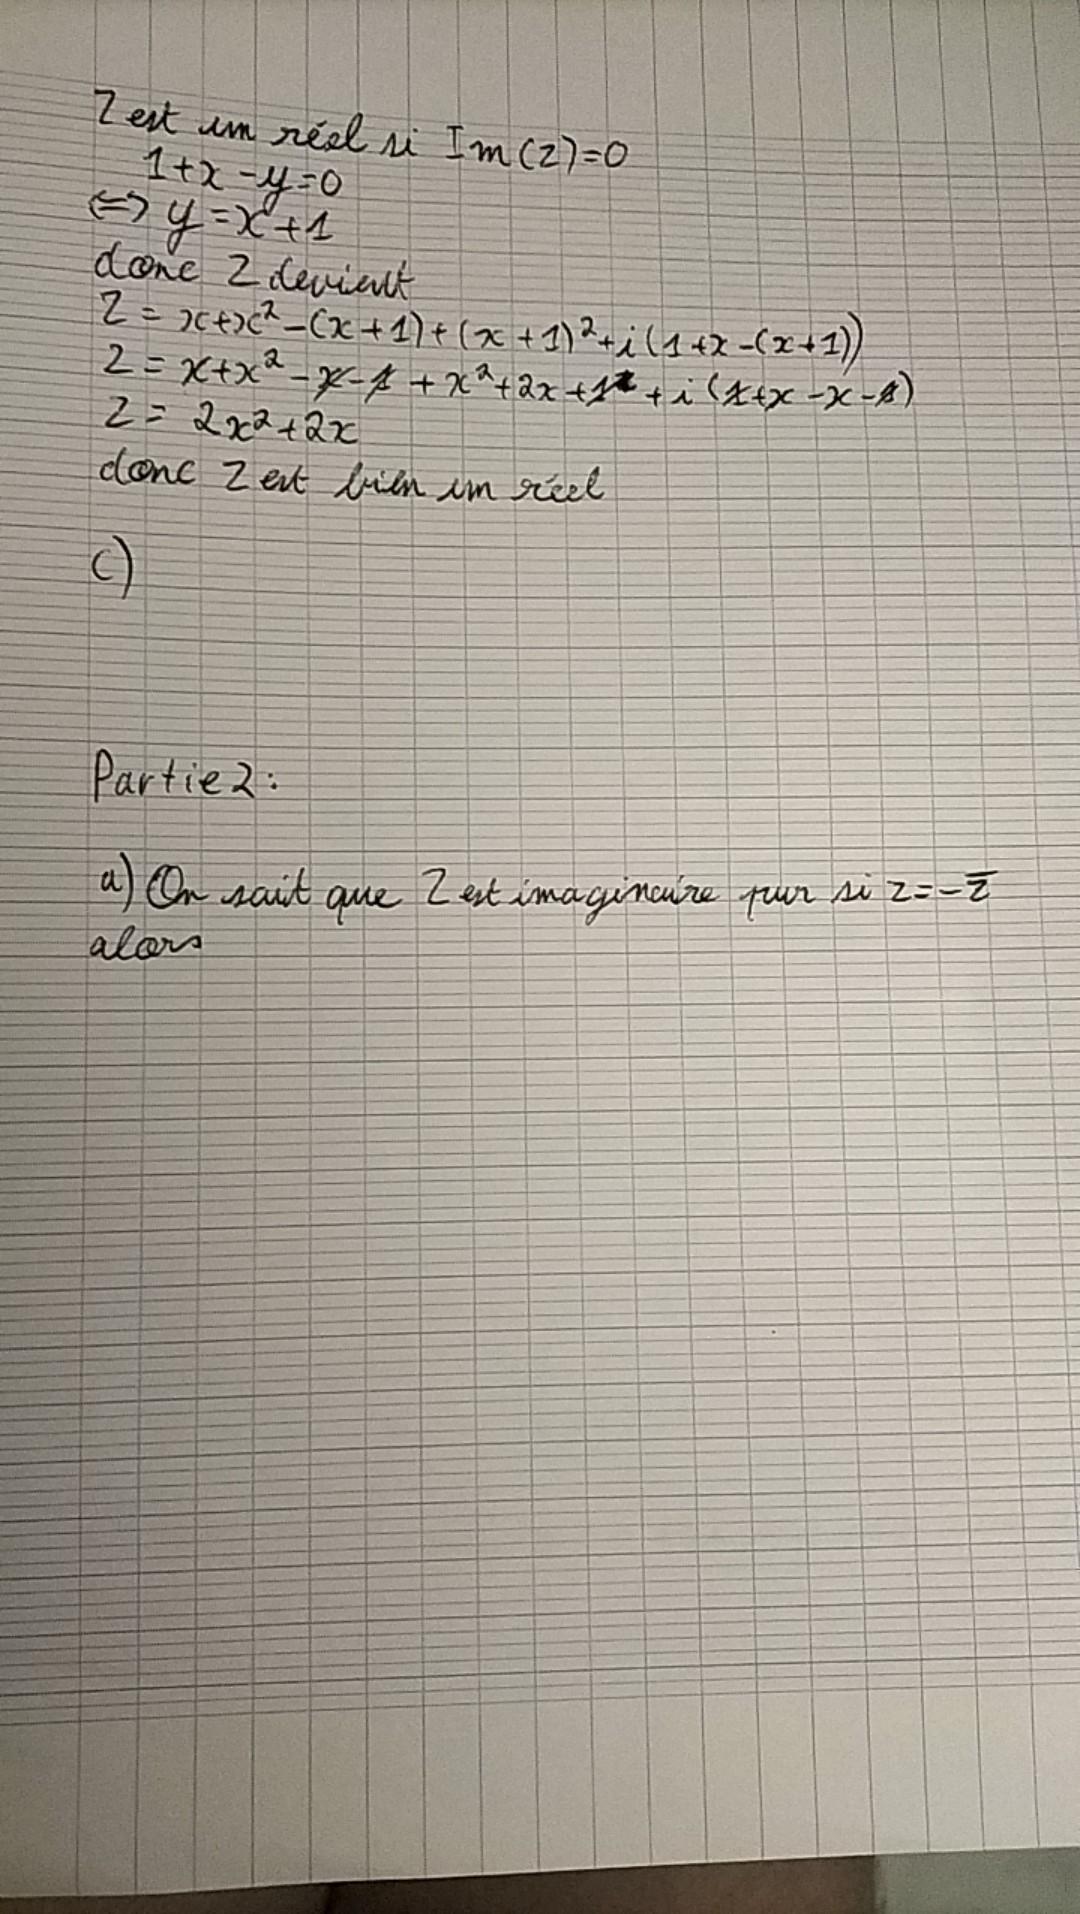 Z est un réel si Im(Z)=0
1+x-y=0
⟺ y=x+1
donc Z devient
Z = x+x²-(x+1)+(x+1)²+i(1+x-(x+1))
Z = x+x²-x-1+x²+2x+1+i(1+x-x-1)
Z = 2x²+2x
donc Z est bien un réel
C)
Partie 2:
a) On sait que Z est imaginaire pur si z=-z̅
alors